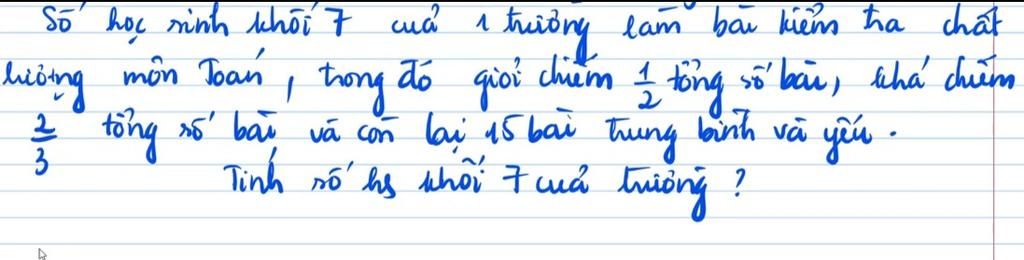 Số học sinh khối 7 của 1 trường làm bài kiểm tra chất
lượng môn Toán, trong đó giỏi chiếm 1/2 tổng số bài, khá chiếm
2/3 tổng số bài và còn lại 15 bài trung bình và yếu.
Tính số hs khối 7 của trường?